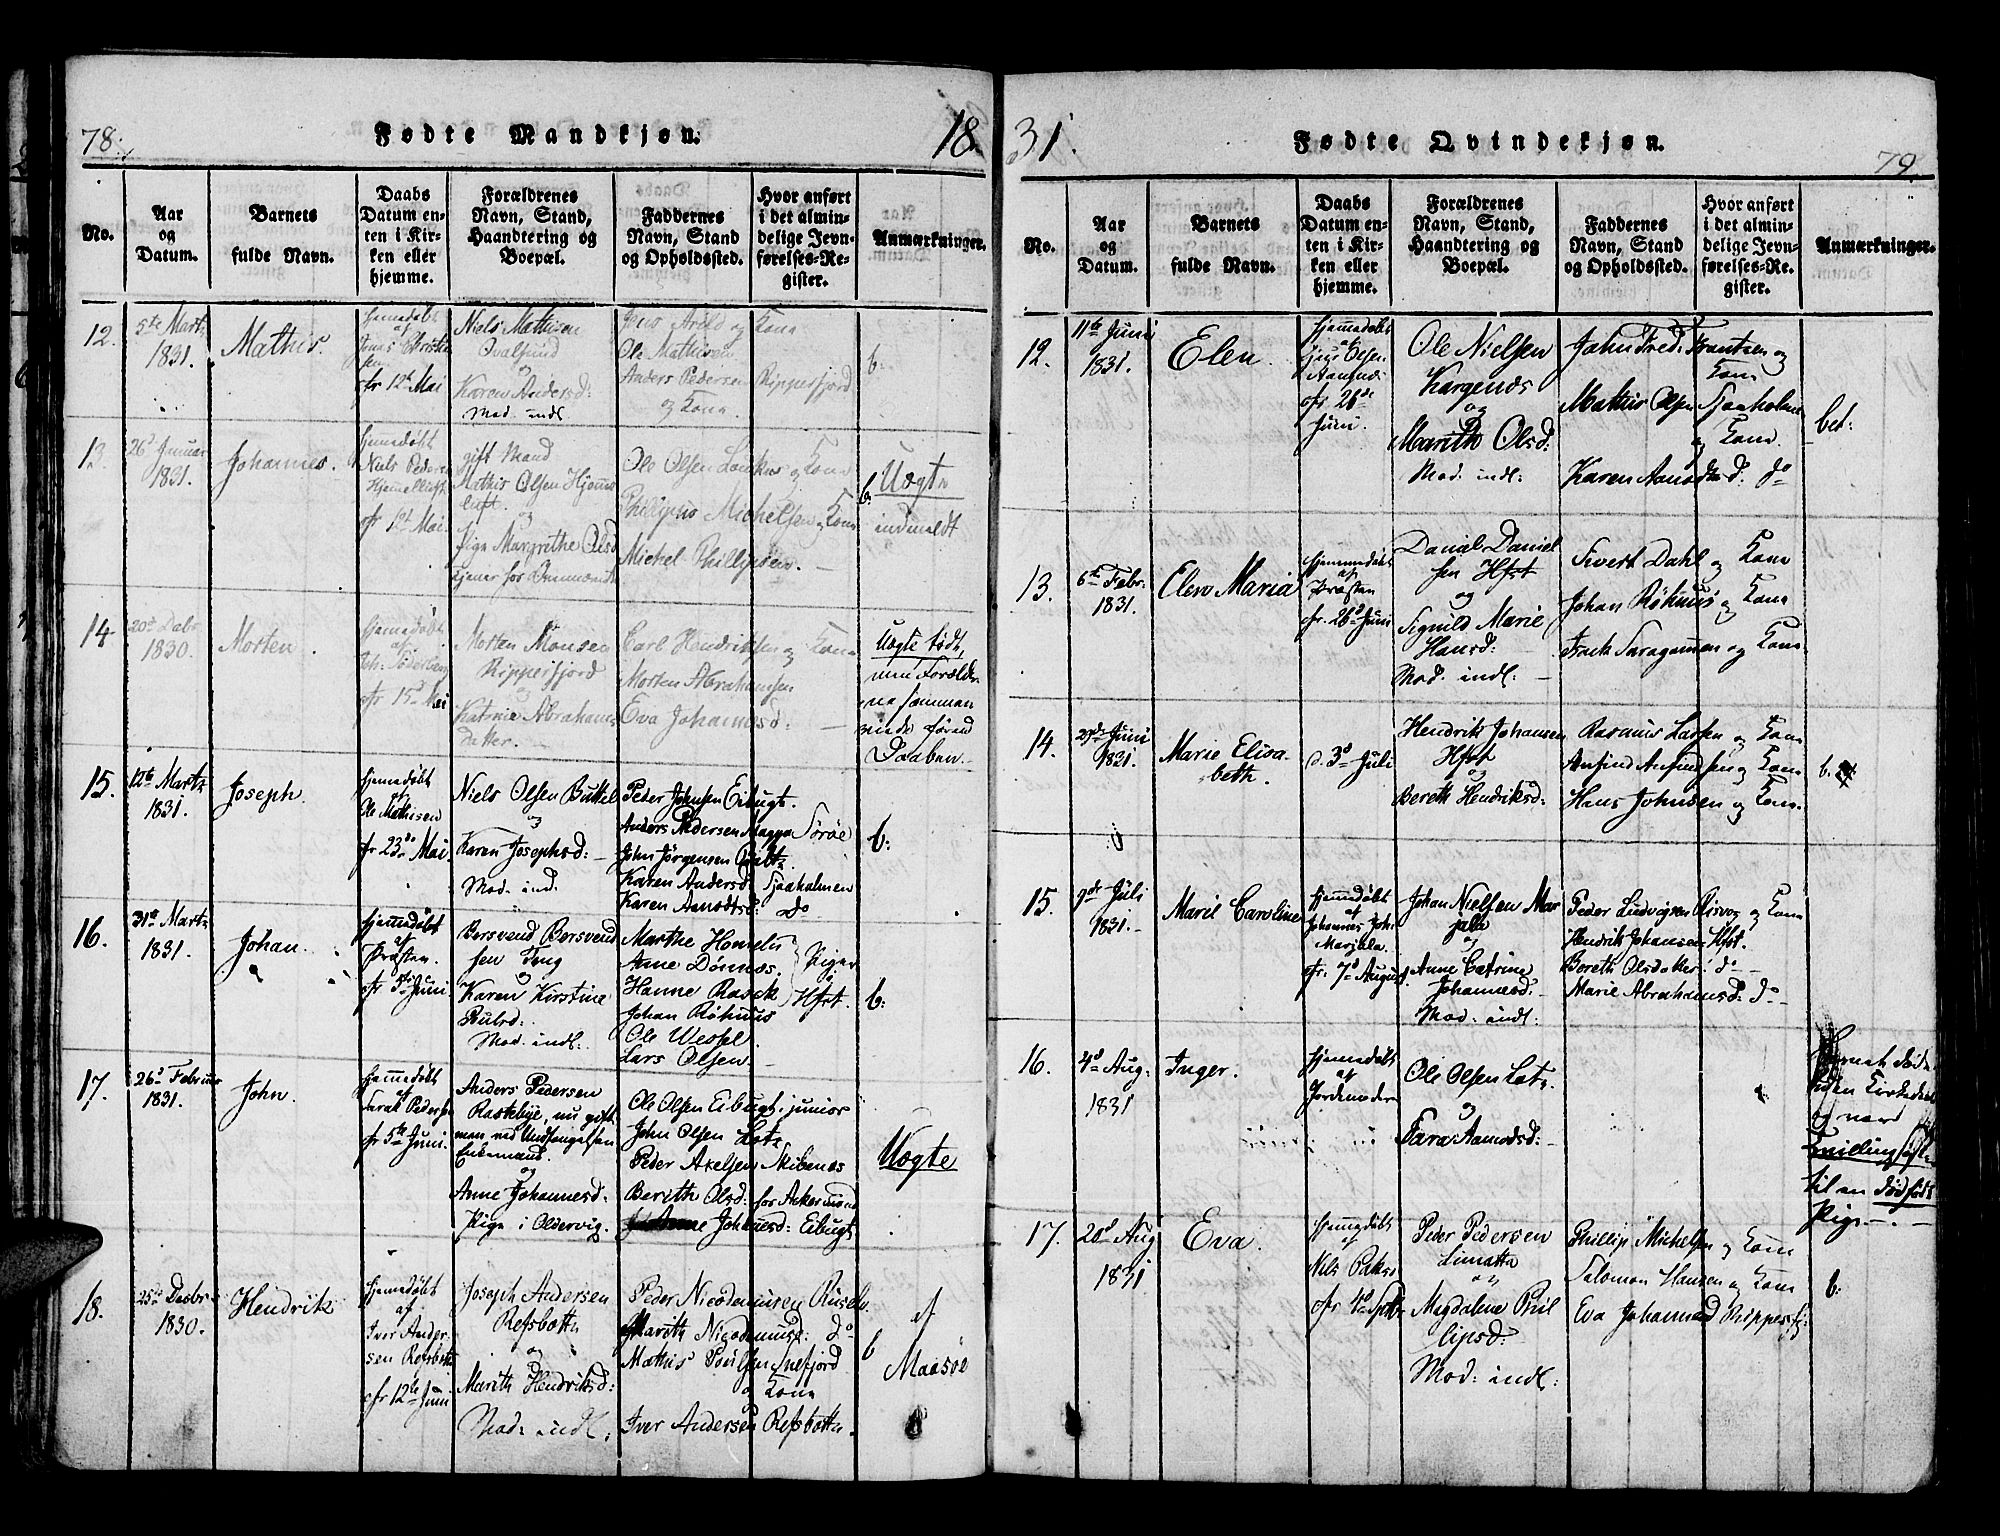 78.
Fødte Mandkjøn.
18
No.
Aar
og
Datum.
Barnets
fulde Navn.
Daabs
Datum en-
ten i Kir-
ken eller
hjemme.
Forældrenes
Navn, Stand,
Haandtering og
Boepæl.
Faddernes
Navn, Stand
og Opholdssted.
Hvor anført
i det almin-
delige Jevn-
førelses-Re-
gister.
Anmærkninger.
12.
5te Marts
1831.
Mathis.
Hjemedøbt
af
Jonas
fr 12te Mai
Niels Mathisen
Qvalsund
og
Karen Andersd:
Mod. indl
Jens Arild og Kona
Ole Mathisen
Anders Pedersen Ripperfjord
og Kona.
b.
13.
26d Januar
1831.
Johannes.
Hjemedøbt
Niels Peder
fr 12t Mai.
gift Mand
Mathis Olsen Hjemme
luft.
og
Pigen Margrethe Olsd
tjener for
Ole Olsen og Kona
Philippus Michelsen og Kone
Michel Phillipsen.
b.
Uægte
indmeldt
14
20de Dcb.
1830.
Morten.
Hjemedøbt
af
Joh:
fr 15d Mai
Morten Monsen
Ripperfjord
og
Katrine Abrahams
datter.
Carl Hendriksen og Kona
Morten Abrahamsen
Eva Johannesd:
Uægte født,
men Forælder
ne sammen
viede førend
Daaben.
15.
12te Marts
1831.
Joseph.
Hjemedøbt
af
Ole Mathisen
fr 23de Mai.
Niels Olsen Buttel
og
Karen Josephsd:
Mod. ind.
Peder Johnsen Eibugt.
Anders Pedersen Sørøe
John Jörgensen
Karen Andersd. Sjaaholmen
Karen Aamodtsd: Do
b:
16.
31te Marts
1831.
Johan.
Hjemedøbt
af
Præsten.
fr 5te Juni
Bersvend Bersvend
sen
og
Karen Kirstine
Poulsd:
Mod. indl:
Marthe
Anne Dönnæs.
Hanne Rasch
Johan Röhnus
Ole Wessel.
Lars Olsen.
Piger
i
Hfst.
b:
17.
26d Februar
1831.
John.
Hjemedøbt
Sarak Peders
fr 5te Juni.
Anders Pedersen
nu gift
men ved Undfangelsen
Enkemand.
og
Anne Johannesd.
Pige i Oldervig.
Ole Olsen Eibugt junior
John Olsen
Peder Axelsen
Berith Olsd. for
Johannesd: Eibugt
Uægte
18.
25de Decbr
1830.
Hendrik
Hjemedøbt
af
Iver Ander
sen Refsbotn
fr 12te Juni
Joseph Andersen
Refsbotn
og
Marith Hendriksd:
Mod: indl.
Peder Nicodemusen
Marith Nicodemusd: Do
Mathis Poulsen Snefjord
og Kona
Iver Andersen Refsbotn.
b
af
Maasøe
31.
Fødte Qvindekjøn.
79.
No.
Aar
og
Datum.
Barnets
fulde Navn.
Daabs
Datum en-
ten i Kir-
ken eller
hjemme.
Forældrenes
Navn, Stand,
Haandtering og
Boepæl.
Faddernes
Navn, Stand
og Opholdssted.
Hvor anført
i det almin-
delige Jevn-
førelses-Re-
gister.
Anmærkninger.
12.
11te Juni
1831.
Elen.
Hjemmedøbt
af
Olsen
fr 26de
Juni.
Ole Nielsen
Kargenæs
og
Marith Olsd:
Mod. indl:
John Fred. Frantsen og
Kona
Mathis Olsen Sjaaholmen
og Kona.
Karen Aamodtsd: Do
bet:
13.
6te Febr.
1831.
Elen Maria
Hjemmedøbt
af
Præsten
fr. 26d Juni
Daniel Daniel
sen Hfst
og
Sigrild Marie
Hansd:
Mod. indl:
Sivert Dahl og Kona
Johan Röhnus og Kona
og Kona
14.
29de Juni
1831.
Marie Elisa
beth.
d. 3d Juli
Hendrik Johansen
Hfst
og
Bereth Hendriksd:
Rasmus Larsen og Kona
Anfind Anfindsen og Kona
Hans Johnsen og Kona.
b.
15.
9de Juli
1831.
Maril Caroline
Hjemedøbt
af
Johannes Joh.
Marjala.
fr. 7d August.
Johan Nielsen Mar
jala
og
Anne Catrine
Johannesd:
Mod: indl:
Peder Ludvigsen Risvog og Kona
Hendrik Johansen Hfst.
Bereth Olsdatter: do
Marie Abrahamsd: do
16.
4d Aug.
1831
Inger.
Hjemedøbt
af
Jordemoder
Ole Olsen
og
Sara Aamodsd:
Barnet døde
og nærd
til en dödfödt
Pige.
17.
20d Aug
1831
Eva.
Hjemedøbt
af
Nils
fr 4d Septbr
Peder Pedersen
Limatta
og
Magdalene Phil
lipsd:
Mod: indl:
Phillip Michelsen og Kona
Salomon Hansen og Kona
Eva Johannesd Ripperfj.
b: